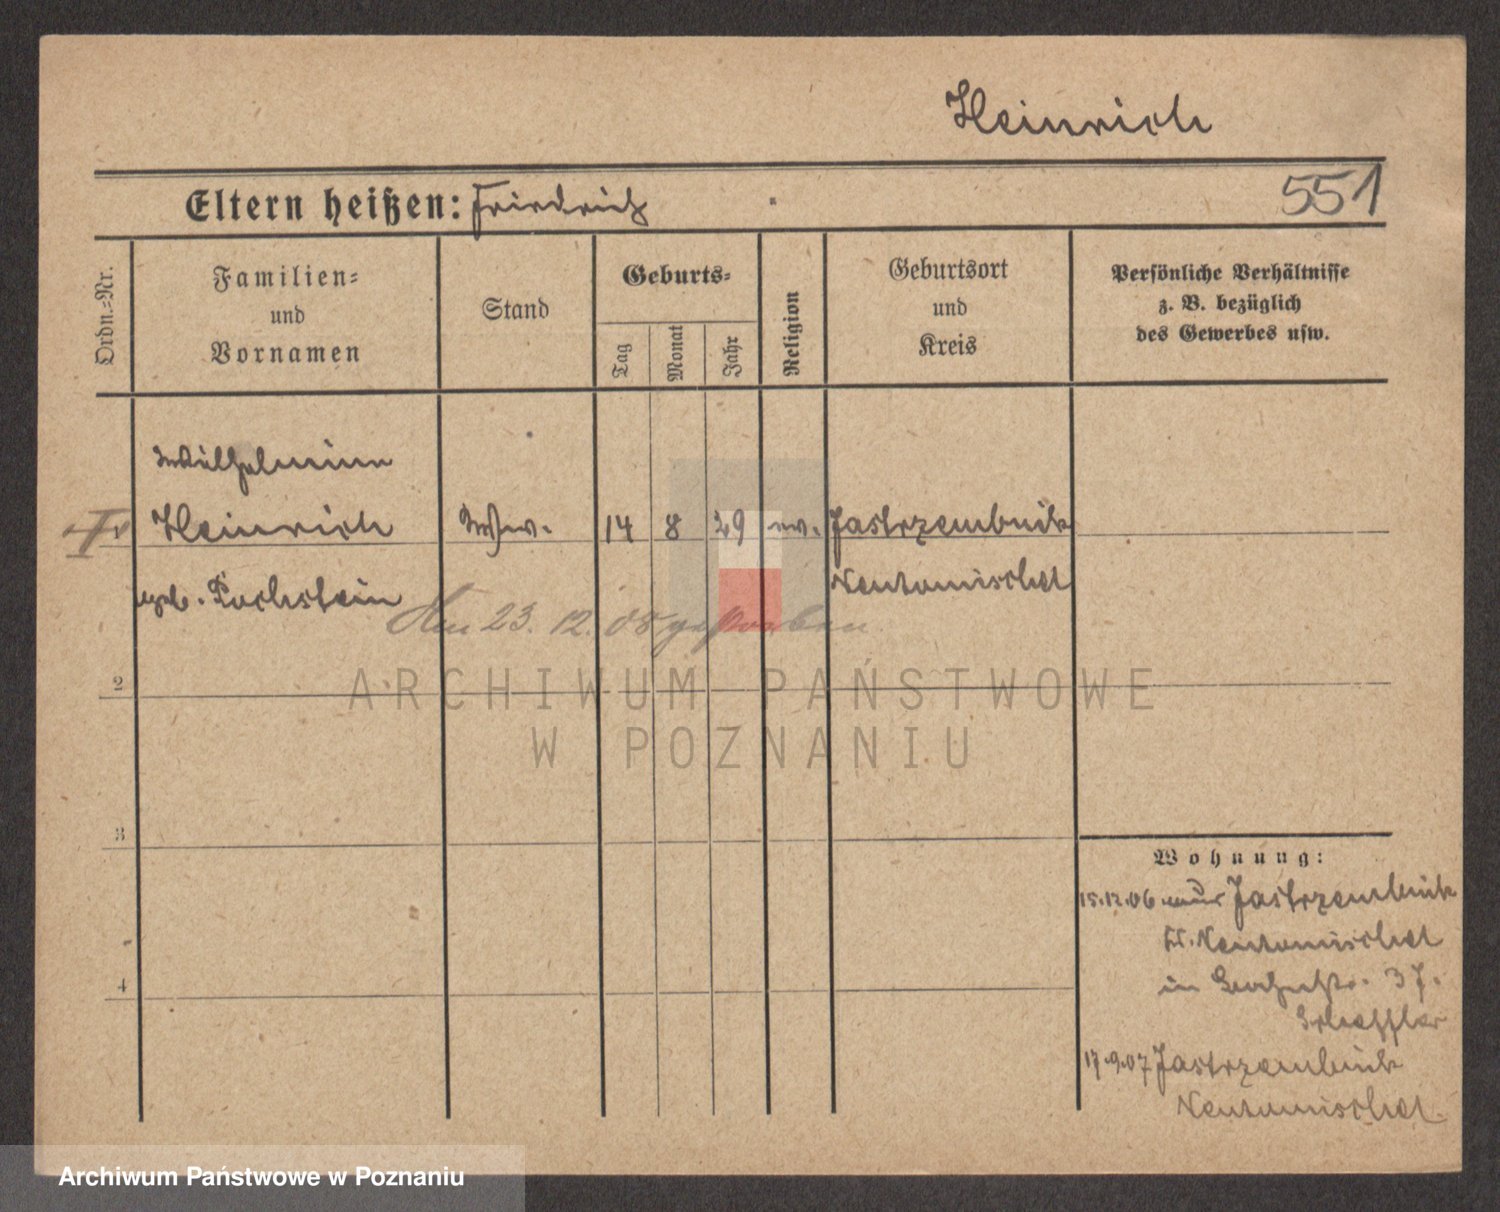 Heinrich
551
Eltern heißen: Friedrich
Ordn.=Nr.
Familien=
und
Vornamen
Stand
Geburts=
Tag
Monat
Jahr
Religion
Geburtsort
und
Kreis
Persönliche Verhältnisse
z. B. bezüglich
des Gewerbes usw.
Wilhelmine
Heinrich
geb. Pachstein
Ww.
14
8
29
ev.
Jastrzembnik
Neutomischel
Am 23. 12. 08 gestorben
2
3
4
Wohnung:
15.12.06 aus Jastrzembnik
Kr. Neutomischel
in 37.
Scheffler
17.9.07 Jastrzembnik
Neutomischel
ARCHIWUM PAŃSTWOWE
W POZNANIU
Archiwum Państwowe w Poznaniu